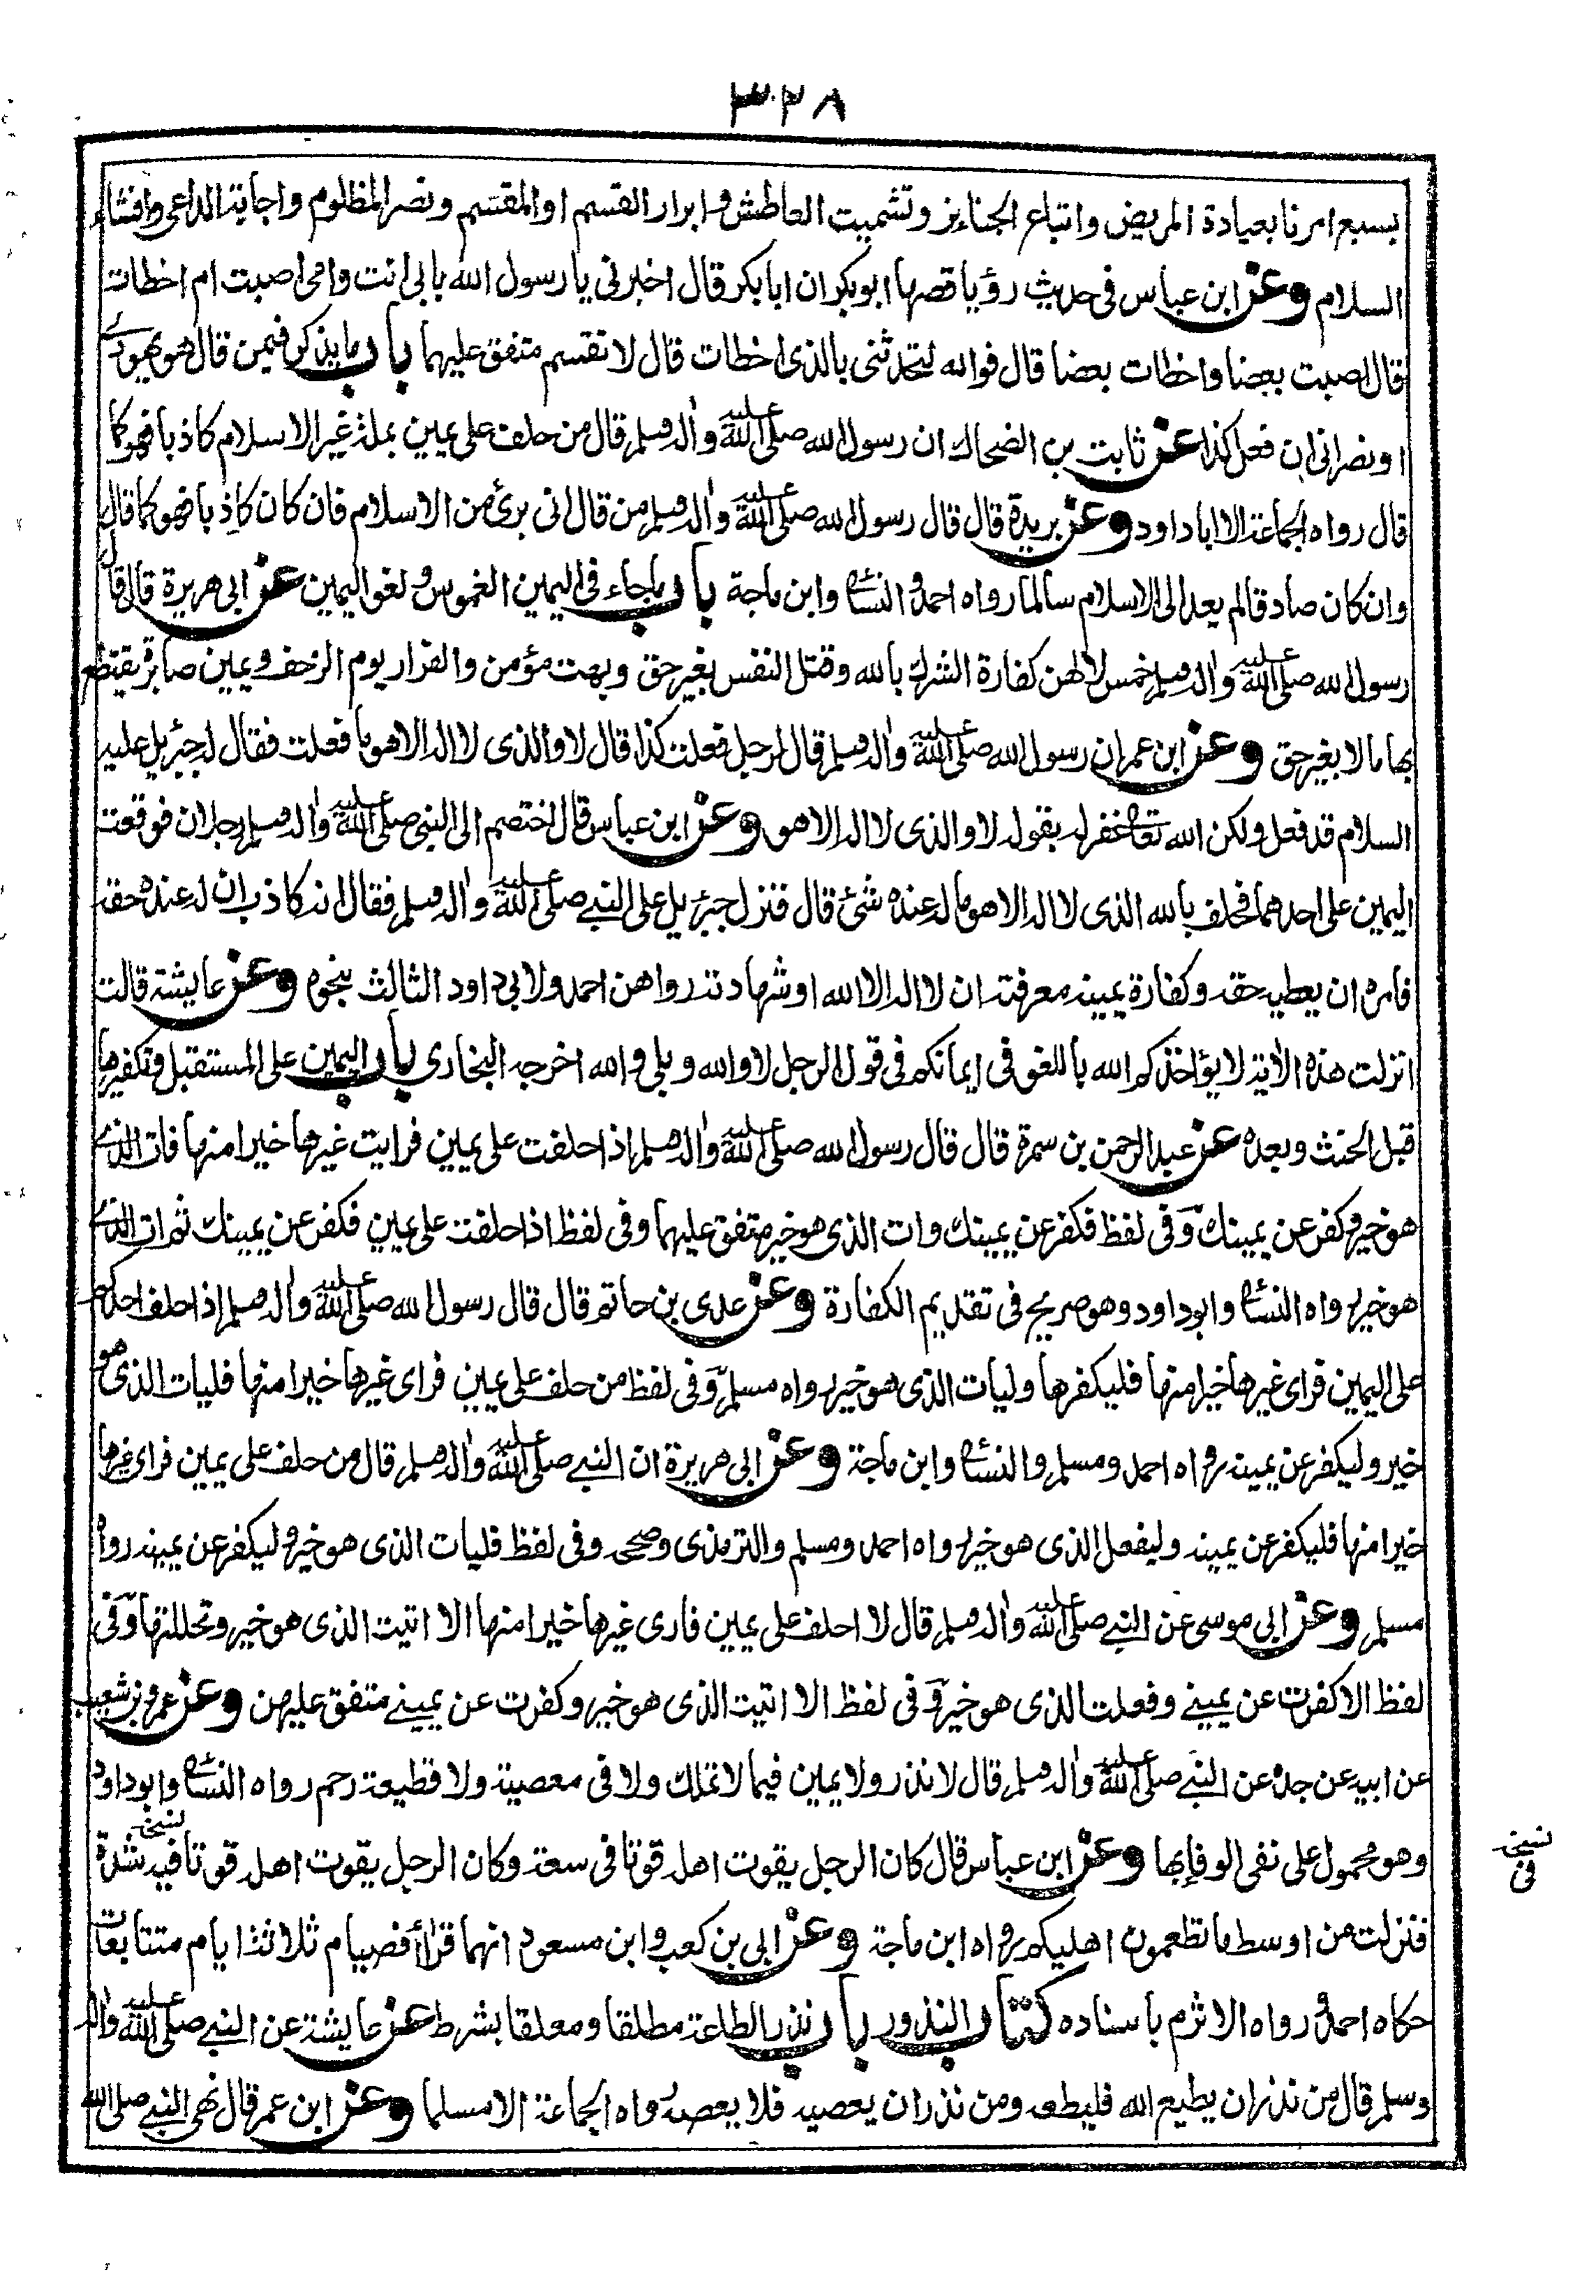 ٣٢٨
بسبع امرنا بعيادة المريض واتباع الجنائز وتشميت العاطش وابرار القسم او المقسم ونصر المظلوم واجابة الداعى وافشاء
السلام وعن ابن عباس فى حديث رؤيا قصها ابو بكر ان ابا بكر قال اخبرنى يا رسول الله بابى انت وامى اصبت ام اخطات
قال اصبت بعضا واخطات بعضا قال فوالله لتحدثنى بالذى اخطات قال لا تقسم متفق عليهما باب ما يذكر فيمن قال هو يهودى
او نصرانى ان فعل كذا عن ثابت بن الضحاك ان رسول الله صلى الله عليه واله وسلم قال من حلف على يمين بملة غير الاسلام كاذبا فهو كما
قال رواه الجماعة الا ابا داود وعن بريدة قال قال رسول الله صلى الله عليه واله وسلم من قال انى برئ من الاسلام فان كان كاذبا فهو كما قال
وان كان صادقا لم يعد الى الاسلام سالما رواه احمد والنسائى وابن ماجة باب ما جاء فى اليمين الغموس ولغو اليمين عن ابى هريرة قال قال
رسول الله صلى الله عليه واله وسلم خمس لا لهن كفارة الشرك بالله وقتل النفس بغير حق وبهت مؤمن والفرار يوم الزحف ويمين صابرة يقتطع
بها مالا بغير حق وعن ابن عمر ان رسول الله صلى الله عليه واله وسلم قال لرجل فعلت كذا قال لا والذى لا اله الا هو ما فعلت فقال له جبرئيل عليه
السلام قد فعل ولكن الله تعالى غفر له بقوله لا والذى لا اله الا هو وعن ابن عباس قال اختصم الى النبى صلى الله عليه واله وسلم رجلان فوقعت
اليمين على احدهما فحلف بالله الذى لا اله الا هو ما له عنده شئ قال فنزل جبرئيل على النبى صلى الله عليه واله وسلم فقال انه كاذب ان له عنده حقه
فامره ان يعطيه حقه وكفارة يمينه معرفته ان لا اله الا الله او شهادته رواهن احمد ولابى داود الثالث بنحوه وعن عايشة قالت
انزلت هذه الاية لا يؤاخذكم الله باللغو فى ايمانكم فى قول الرجل لا والله وبلى والله اخرجه البخارى باب اليمين على المستقبل وتكفيرها
قبل الحنث وبعده عن عبد الرحمن بن سمرة قال قال رسول الله صلى الله عليه واله وسلم اذا حلفت على يمين فرايت غيرها خيرا منها فات الذى
هو خير وكفر عن يمينك وفى لفظ فكفر عن يمينك وات الذى هو خير متفق عليهما وفى لفظ اذا حلفت على يمين فكفر عن يمينك ثم ات الذى
هو خير رواه النسائى وابو داود وهو صريح فى تقديم الكفارة وعن عدى بن حاتم قال قال رسول الله صلى الله عليه واله وسلم اذا حلف احدكم
على اليمين فراى غيرها خيرا منها فليكفرها وليات الذى هو خير رواه مسلم وفى لفظ من حلف على يمين فراى غيرها خيرا منها فليات الذى هو
خير وليكفر عن يمينه رواه احمد ومسلم والنسائى وابن ماجة وعن ابى هريرة ان النبى صلى الله عليه واله وسلم قال من حلف على يمين فراى غيرها
خيرا منها فليكفر عن يمينه وليفعل الذى هو خير رواه احمد ومسلم والترمذى وصححه وفى لفظ فليات الذى هو خير وليكفر عن يمينه رواه
مسلم وعن ابى موسى عن النبى صلى الله عليه واله وسلم قال لا احلف على يمين فارى غيرها خيرا منها الا اتيت الذى هو خير وتحللتها وفى
لفظ الا كفرت عن يمينى وفعلت الذى هو خير وفى لفظ الا اتيت الذى هو خير وكفرت عن يمينى متفق عليهن وعن عمرو بن شعيب
عن ابيه عن جده عن النبى صلى الله عليه واله وسلم قال لا نذر ولا يمين فيما لا تملك ولا فى معصية ولا قطيعة رحم رواه النسائى وابو داود
وهو محمول على نفى الوفا بها وعن ابن عباس قال كان الرجل يقوت اهله قوتا فى سعة وكان الرجل يقوت اهله قوتا فيه نسخه شدة
نسخه فى
فنزلت من اوسط ما تطعمون اهليكم رواه ابن ماجة وعن ابى بن كعب وابن مسعود انهما قراأ فصيام ثلاثة ايام متتابعات
حكاه احمد ورواه الاثرم باسناده كتاب النذور باب نذر الطاعة مطلقا ومعلقا بشرط عن عايشة عن النبى صلى الله عليه واله
وسلم قال من نذر ان يطيع الله فليطعه ومن نذر ان يعصيه فلا يعصه رواه الجماعة الا مسلما وعن ابن عمر قال نهى النبى صلى الله